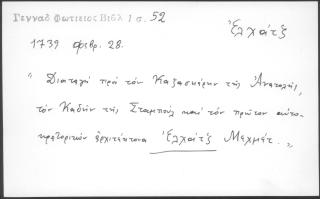 Γενναδ Φωτιειος Βιβλ 1 σ. 52
Ἐλχάτζ
1739 φεβρ. 28.
"Διαταγὴ πρὸ τὸν Καζασκέρην τῆς Ἀνατολῆς,
τὸν Καδῆν τῆς Σταμποὺλ καὶ τὸν πρῶτον αὐτο-
κρατορικὸν ἀρχιτέκτονα Ἐλχάτζ Μεχμέτ.„